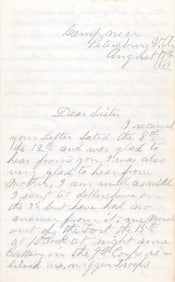 Camp near
Petersburg Va
August 17th
1864
Dear Sister
I received
your Letter dated the 8th
the 12th and was glad to
hear from you I was also
very glad to hear from
Mother, I am well as usual
I sent 60 dollars home on
the 3d but have had no
answer from it; we moved
out of the Fort the 15th
at 10 oclock at night some
Battery on the 9th Corps re-
lieved us, nigger troops